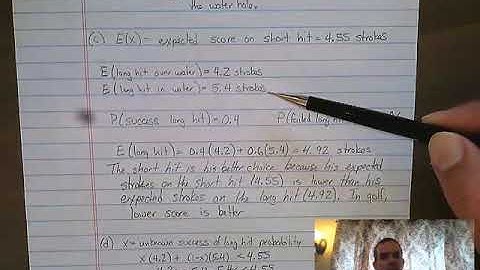 the water hole.
(c) E(X) = expected score on short hit = 4.55 strokes
E(long hit over water) = 4.2 strokes
E(long hit in water) = 5.4 strokes
P(success long hit) = 0.4 P(failed long
E(long hit) = 0.4(4.2) + 0.6(5.4) = 4.92 strokes
The short hit is his better choice because his expected
strokes on the short hit (4.55) is lower than his
expected strokes on the long hit (4.92). In golf,
lower score is better
(d) X = unknown success of long hit probability
X(4.2) + (1-X)(5.4) < 4.55